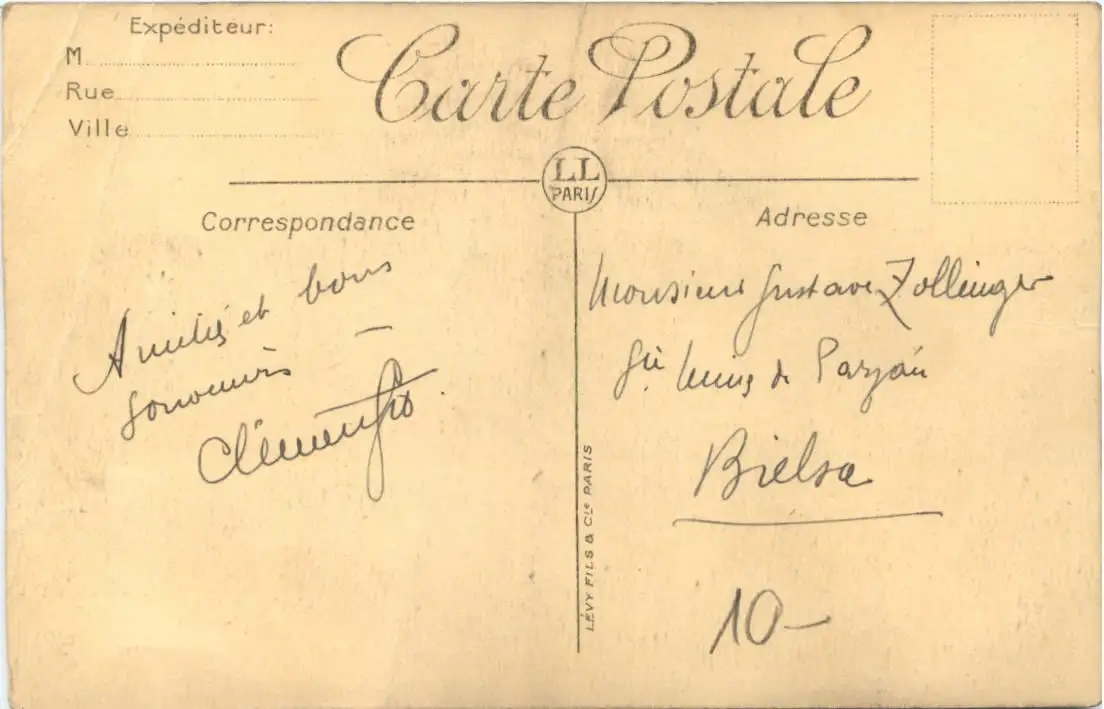 Expéditeur:
M
Rue
Ville
Carte Postale
LL
PARIS
Correspondance
Adresse
Amitiés et bons
souvenirs
Monsieur Gustave Zollinger
de Parzán
Bielsa
10-
LÉVY FILS & Cie PARIS